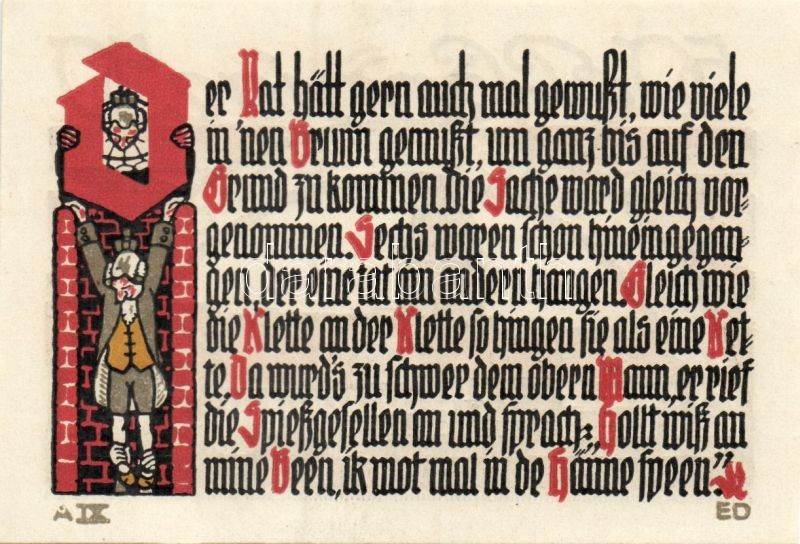 Der Rat hätt gern auch mal gewußt, wie viele
in 'nen Brunn gemußt, um ganz bis auf den
Grund zu kommen. Die Sache ward gleich vor-
genommen. Sechs waren schon hineingegan-
gen, der eine tat am andern hangen. Gleich wie
die Klette an der Klette so hingen sie als eine Ket-
te. Da wurd's zu schwer dem obern Mann, er rief
die Spießgesellen an und sprach: „Hollt wiß an
mine Been, ik mot mal in de Hänne speen."
A IX
ED
databanth